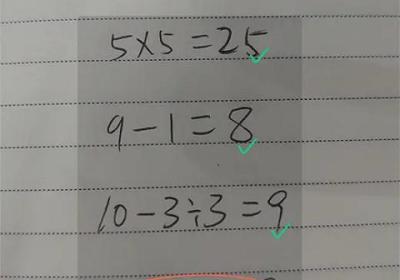 5×5=25
9-1=8
10-3÷3=9